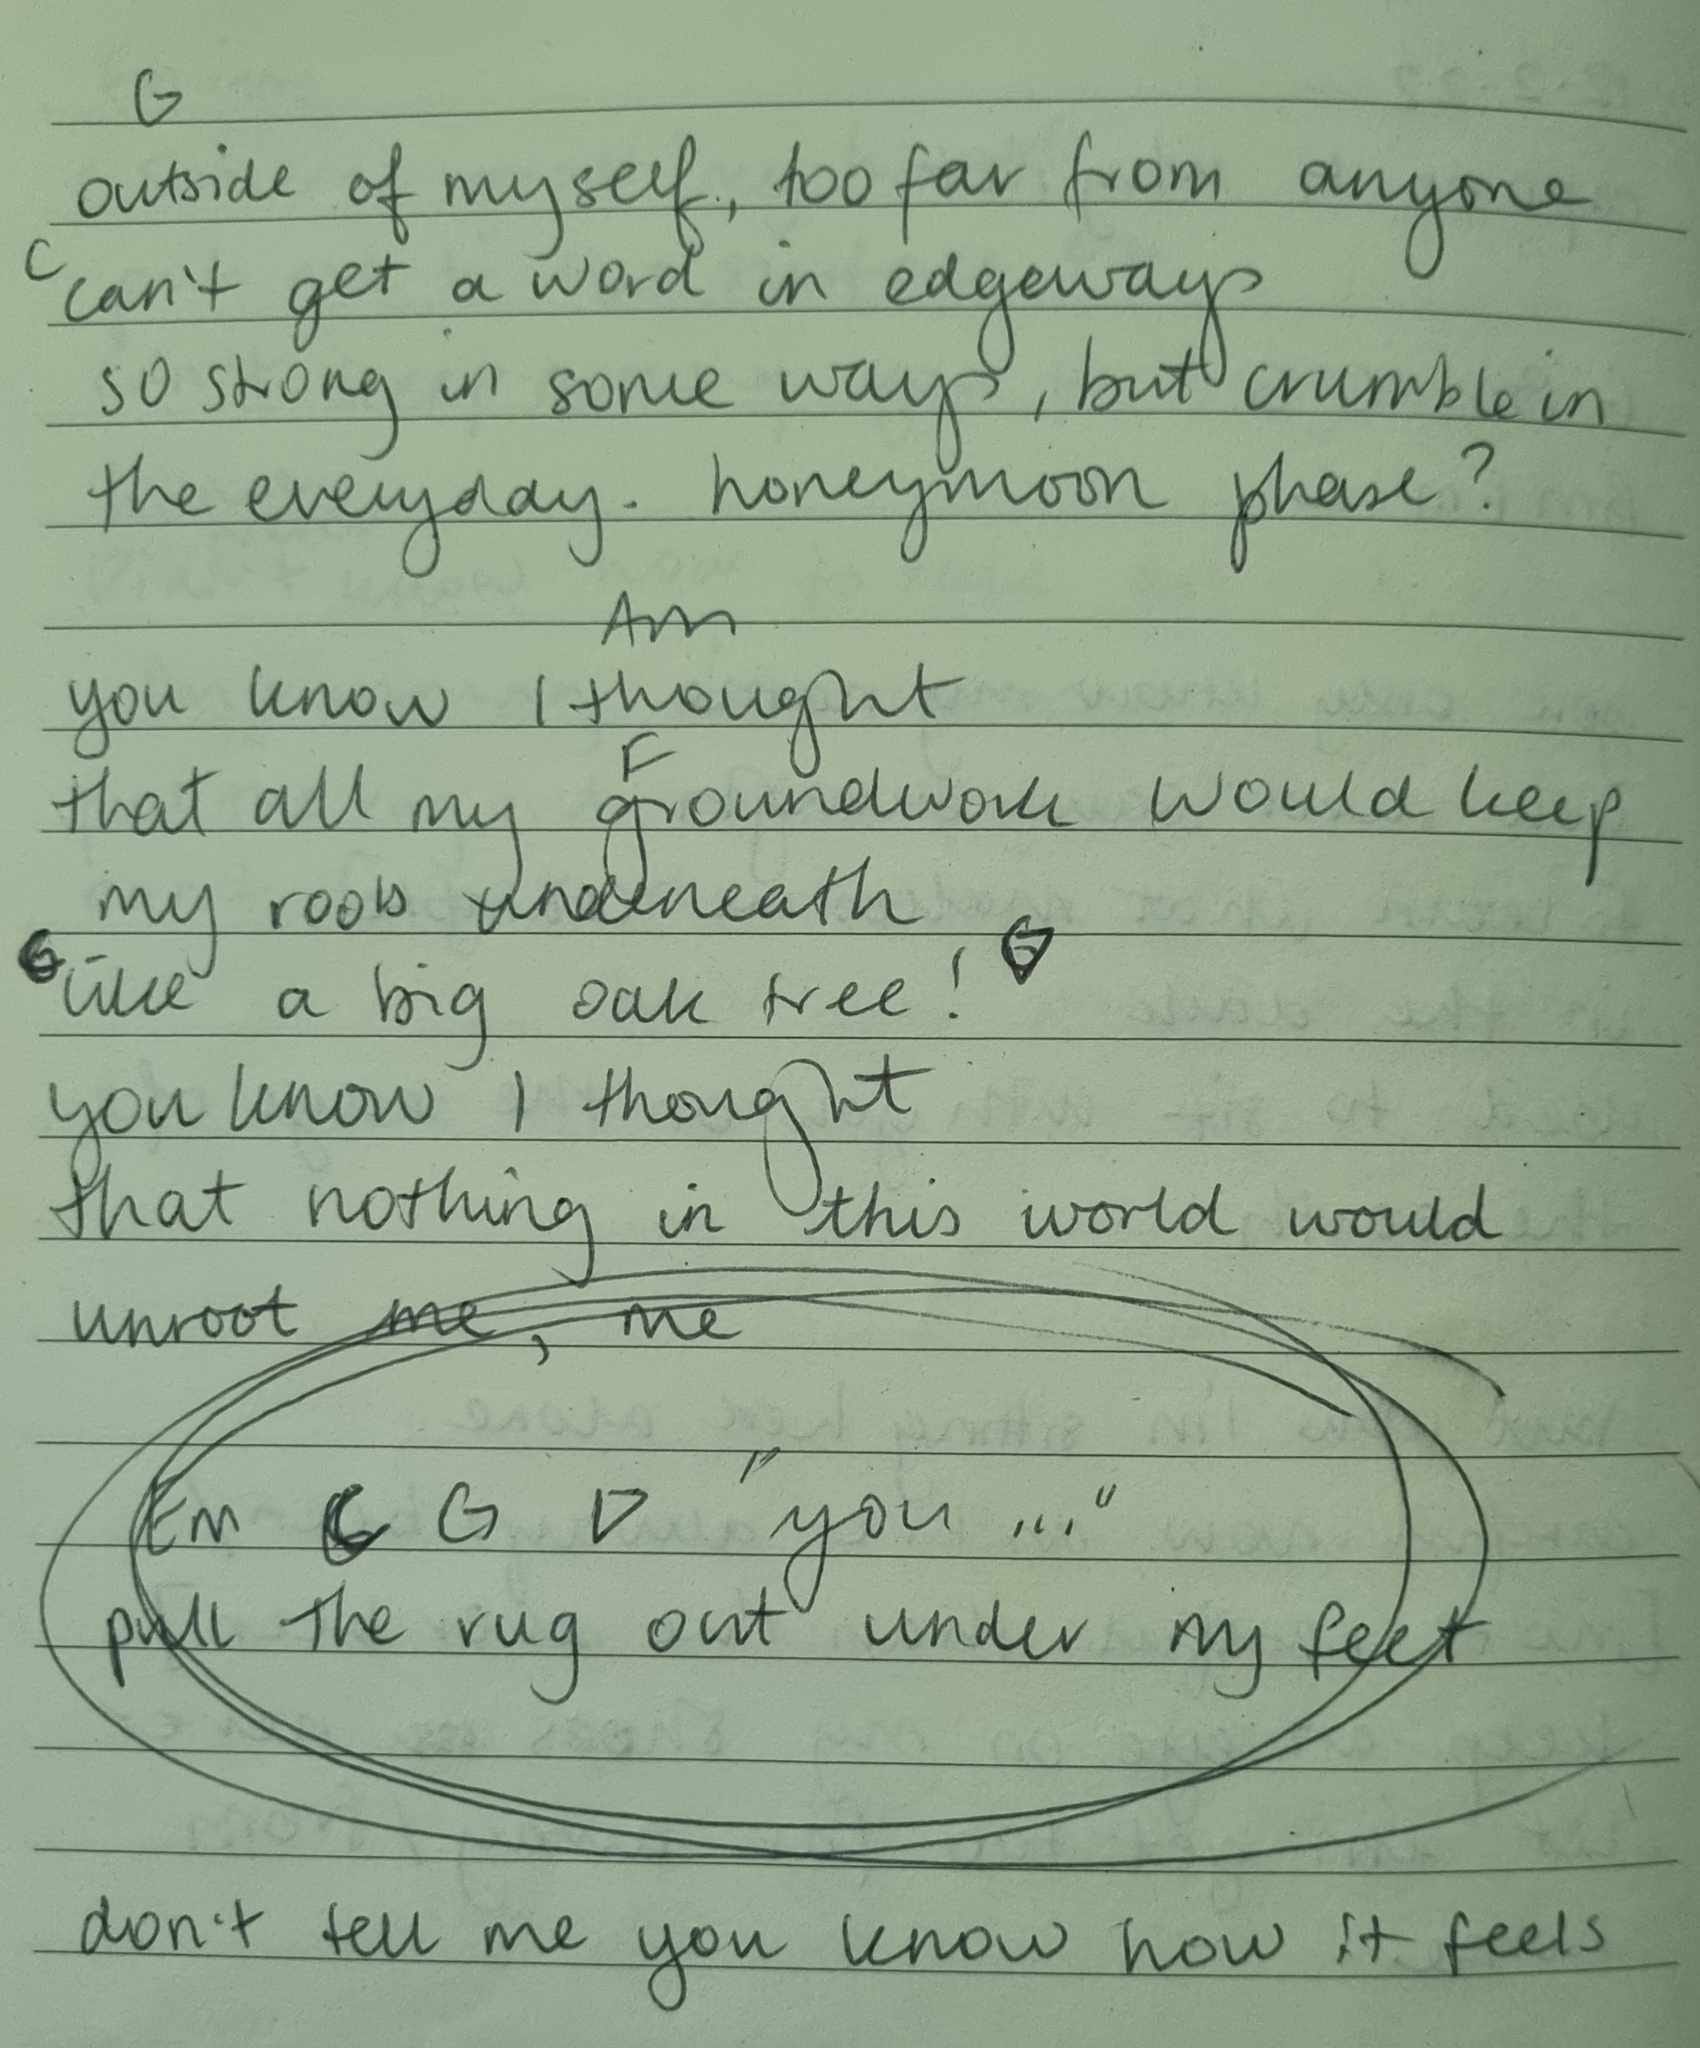 G
outside of myself, too far from anyone
C can't get a word in edgeways
so strong in some ways, but crumble in
the everyday. honeymoon phase?
Am
you know I thought
F
that all my groundwork would keep
my roots underneath
G like a big oak tree! G
you know I thought
that nothing in this world would
unroot me, me
Em C G D "you ..."
pull the rug out under my feet
don't tell me you know how it feels